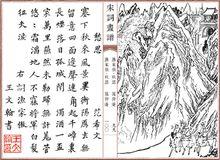 宋詞畫譜
愁思 范希文
塞下秋來風景異衡陽雁去無
留意四面邊聲連角起千嶂裏
長煙落日孤城閉濁酒一盃家
萬里燕然未勒歸無計羌管悠
悠霜滿地人不寐將軍白髮
征夫淚
王文翰書